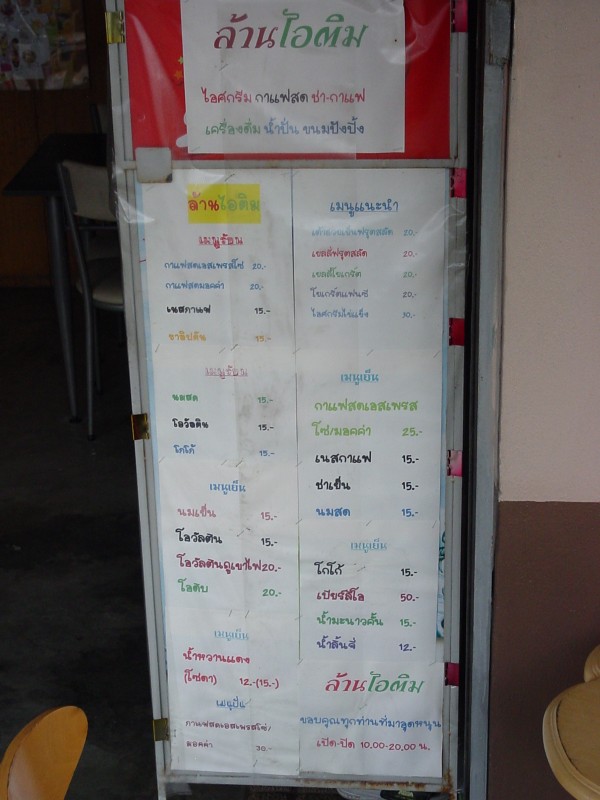 ล้านไอติม
ไอศกรีม กาแฟสด ชา-กาแฟ
เครื่องดื่ม น้ำปั่น ขนมปังปิ้ง
ล้านไอติม
เมนูร้อน
กาแฟสดเอสเพรสโซ่ 20.-
กาแฟสดมอคค่า 20.-
เนสกาแฟ 15.-
ชาลิปตัน 15.-
เมนูร้อน
นมสด 15.-
โอวัลติน 15.-
โกโก้ 15.-
เมนูเย็น
นมเย็น 15.-
โอวัลติน 15.-
โอวัลตินภูเขาไฟ 20.-
โอติบ 20.-
เมนูเย็น
น้ำหวานแดง
(โซดา) 12.-(15.-)
เมนูปั่น
กาแฟสดเอสเพรสโซ่/
มอคค่า 30.-
เมนูแนะนำ
20.-
เยลลี่ฟรุตสลัด 20.-
เยลลี่โยเกิร์ต 20.-
โยเกิร์ตแฟนซี 20.-
ไอศกรีมไข่แข็ง 10.-
เมนูเย็น
กาแฟสดเอสเพรส
โซ่/มอคค่า 25.-
เนสกาแฟ 15.-
ชาเย็น 15.-
นมสด 15.-
เมนูเย็น
โกโก้ 15.-
เบียร์ลีโอ 50.-
น้ำมะนาวคั้น 15.-
น้ำลิ้นจี่ 12.-
ล้านไอติม
ขอบคุณทุกท่านที่มาอุดหนุน
เปิด-ปิด 10.00-20.00 น.